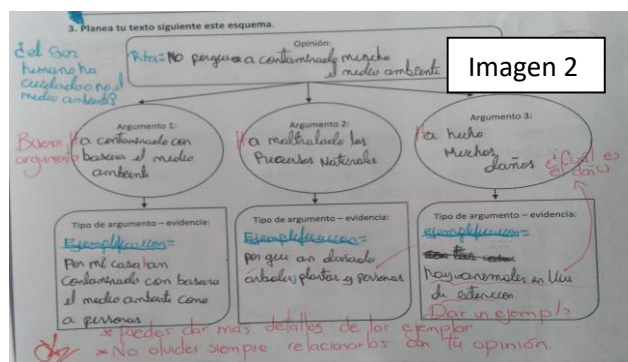 3. Planea tu texto siguiente este esquema.
Opinión:
Rita = No porque a contaminado mucho
el medio ambiente
¿el ser
humano ha
cuidado o no el
medio ambiente?
Imagen 2
Argumento 1:
Ha contaminado con
basura el medio
ambiente
Buen
argumento
Argumento 2:
Ha maltratado los
Recursos Naturales
Argumento 3:
Ha hecho
Muchos
daños
¿Cuál es
el daño
Tipo de argumento – evidencia:
Ejemplificacion=
Por mi casa han
contaminado con basura
el medio ambiente como
a personas
Tipo de argumento – evidencia:
Ejemplificacion=
por que an dañado
arboles, plantas y personas
Tipo de argumento – evidencia:
ejemplificacion=
hay animales en
de extencion
Dar un ejemplo
* Puedes dar mas detalles de los ejemplos
* No olvides siempre relacionarlos con tu opinión.